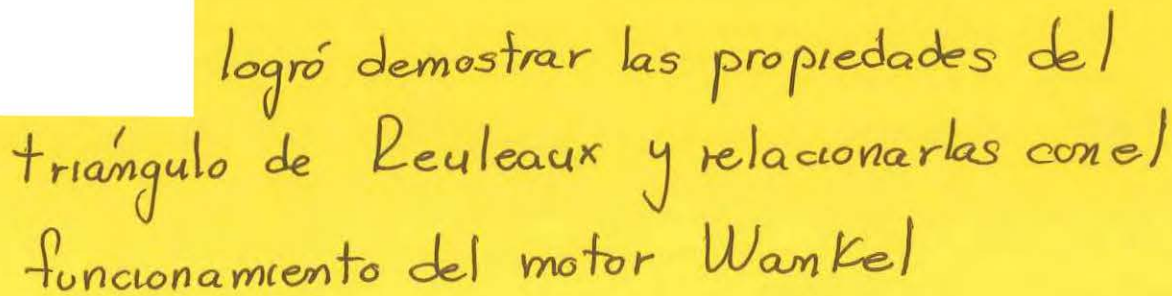 logró demostrar las propiedades del
triángulo de Reuleaux y relacionarlas con el
funcionamiento del motor Wankel